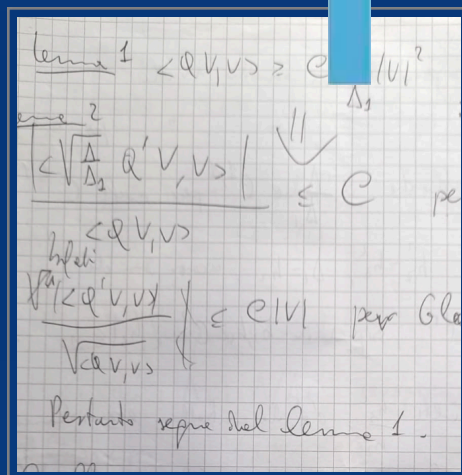 Lemma 1 <QV,V> ≥ C |V|²
Δ₁
2
|<√(Δ/Δ₁) Q' V,V>| / <QV,V> ≤ C pe
Infatti
|<Q'V,V>| / √<QV,V> ≤ C|V| per Glae
Pertanto segue dal lemma 1.